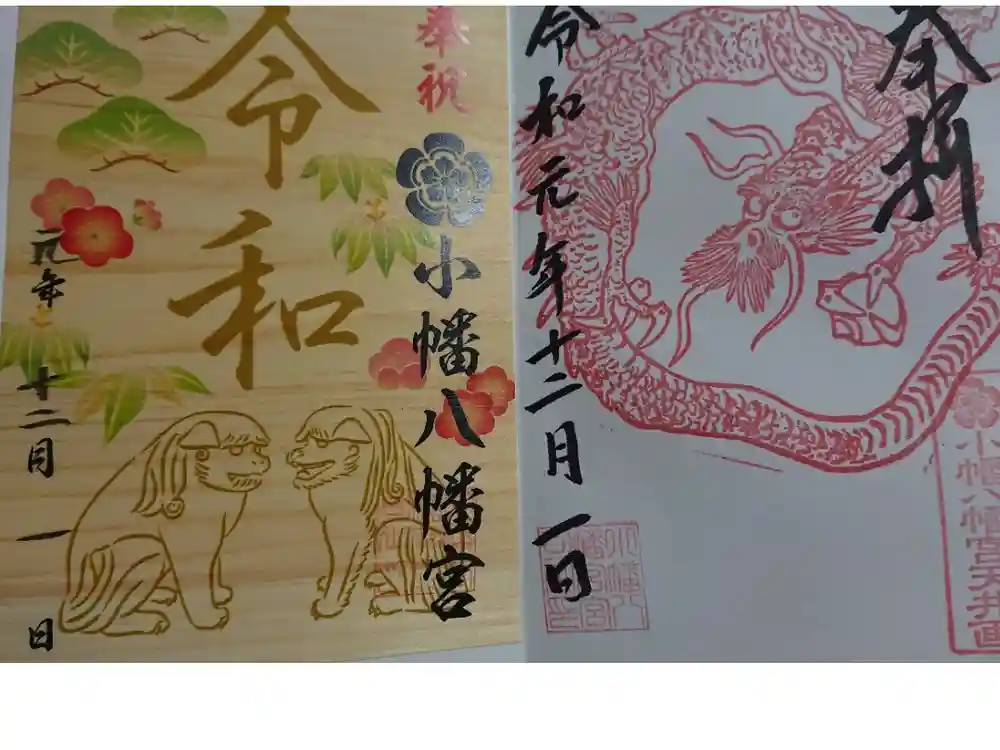 奉祝
小幡八幡宮
令和
元年十二月一日
奉拝
令和元年十二月一日
小幡八幡宮天井画